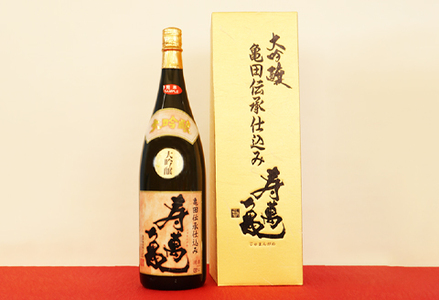 大吟醸
亀田伝承仕込み
寿萬亀
大吟醸
亀田伝承仕込み
寿萬亀